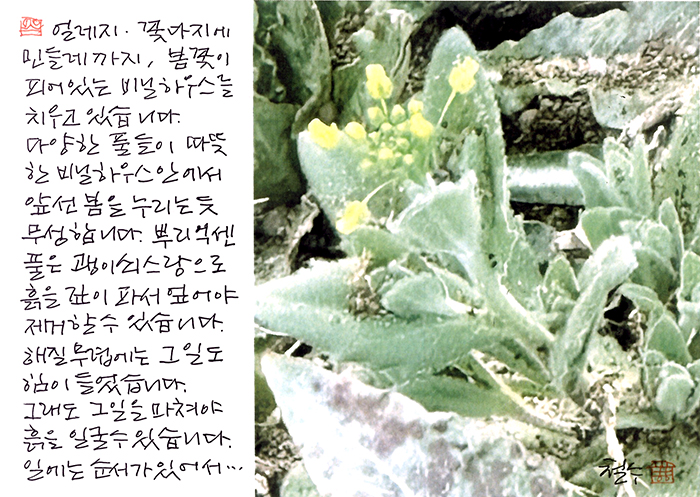 얼레지·꽃다지에
민들레까지, 봄꽃이
피어있는 비닐하우스를
치우고 있습니다.
다양한 풀들이 따뜻
한 비닐하우스안에서
앞선 봄을 누리는듯
무성합니다. 뿌리억센
풀은 괭이쇠스랑으로
흙을 깊이 파서 엎어야
제거할 수 있습니다.
해질무렵에는 그 일도
힘이 들었습니다.
그래도 그일을 마쳐야
흙을 일굴수 있습니다.
일에는 순서가 있어서…
철수